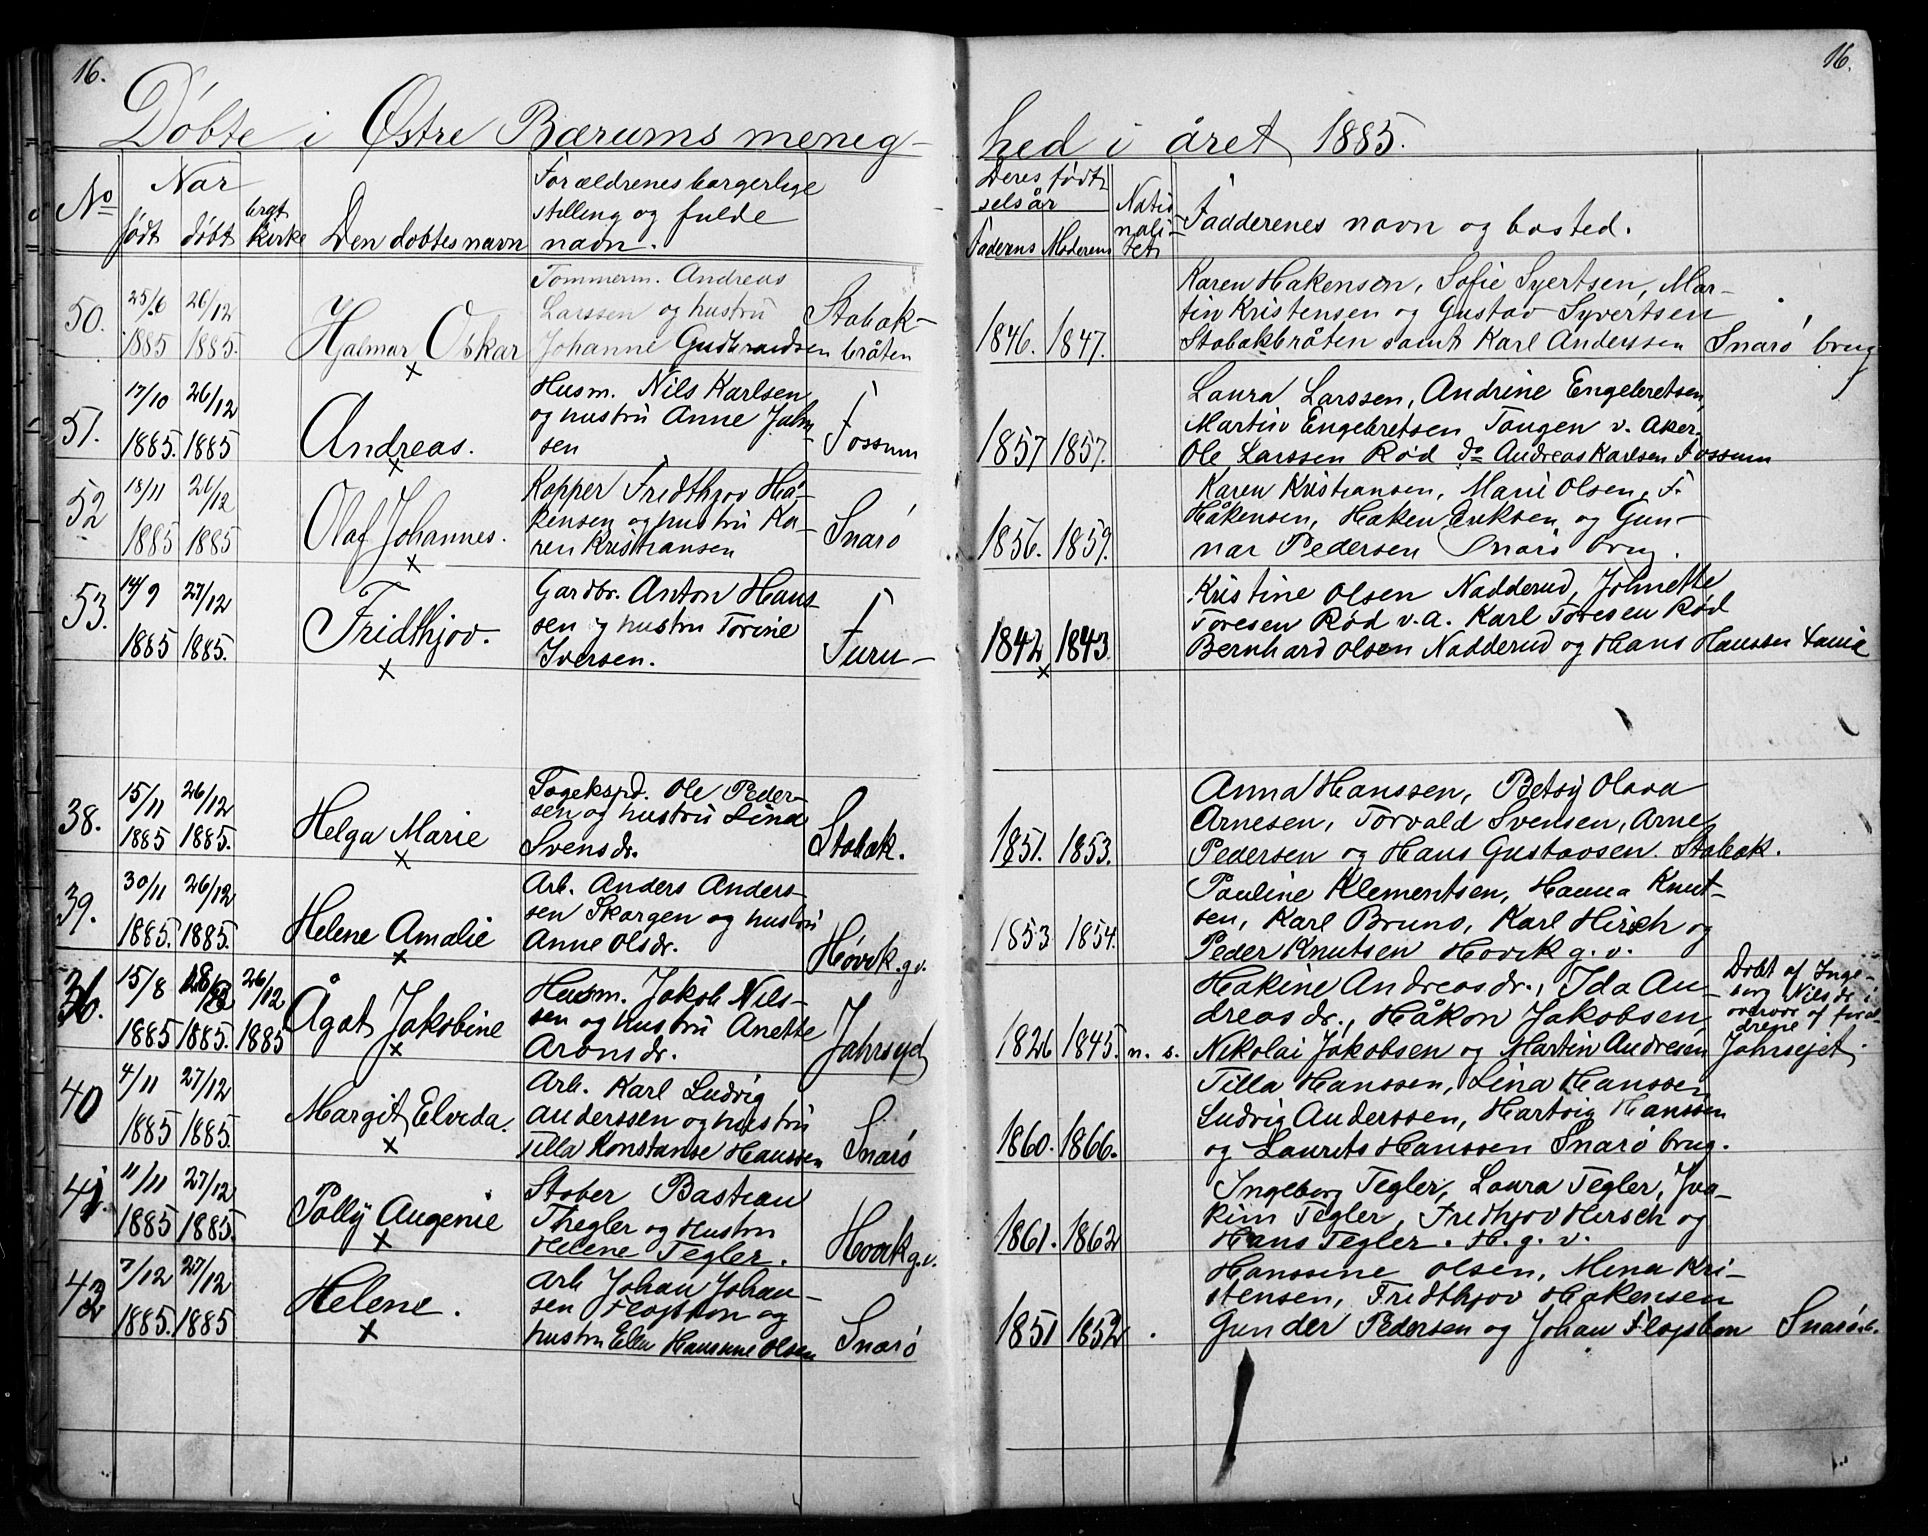 16.
16.
Döbte i Østre Bærums menig-
hed i året 1885.
No
Nar
født
døbt
brgt kirke
Den dobtes navn
Forældrenes borgerlige
stilling og fulde
navn.
Deres født-
selsår
Faderns Moderens
Natio
nali-
tet
Fadderenes navn og bosted.
50.
25/6 26/12
1885 1885.
Hjalmar Oskar
Tommerm. Andreas
Larssen og hustru
Johanne Gudbrandsen
Stabak-
bråten
1846. 1847.
Karen Hakensen, Sofie Syertsen, Mar-
tin Kristensen og Gustav Syvertsen
Stabakbråten samt Karl Anderssen Snarö brug
51.
17/10 26/12
1885. 1885
Andreas.
Husm. Nils Karlsen
og hustru Anne Jahn-
sen
Fossum
1857 1857.
Laura Larssen, Andrine Engebretsen,
Martin Engebretsen Tangen v. Aker.
Ole Larssen Rød do Andreas Karlsen Fossum
52
18/11 26/12
1885 1885
Olaf Johannes.
Kopper Fridthjov Hå-
kensen og hustru Ka-
ren Kristiansen
Snarö
1856. 1859.
Karen Kristiansen, Marie Olsen, F.
Håkensen, Haken Eriksen og Gun-
nar Pedersen Snarö brug.
53.
14/9 27/12
1885 1885.
Fridthjov.
Gardbr. Anton Hans-
sen og hustru Torine
Iversen.
Furu-
1842 1843.
Kristine Olsen Nadderud, Johnette
Toresen Rød v. A. Karl Toresen Rød
Bernhard Olsen Nadderud og Hans Hanssen
38.
15/11 26/12
1885 1885.
Helga Marie
Togekspd. Ole Peder-
sen og hustru Lina
Svensdr.
Stabak.
1851. 1853.
Anna Hanssen, Betsy Olava
Arnesen, Torvald Svensen, Arne
Pedersen og Hans Gustavsen. Stabak.
39.
30/11 26/12
1885. 1885.
Helene Amalie
Arb. Anders Anders-
sen Skargen og hustru
Anne Olsdr.
Høvik. g.v.
1853 1854.
Pauline Klementsen, Hanna Knut-
sen, Karl Bruno, Karl Hirsch og
Peder Knutsen Hovik g. v.
36.
15/8 26/12
1885 1885. 1885
Ågat Jakobine
Husm. Jakob Nils-
sen og hustru Anette
Aronsdr.
Jahrsyd
1826 1845. n. s.
Hakine Andreasdr., Ida An-
dreasdr., Håkon Jakobsen,
Nikolai Jakobsen og Martin Andresen Jahrsejet.
Dobt af Inge-
borg Nilsdr i
overvær af foræl-
drene
40
4/11 27/12
1885 1885.
Margit Elveda.
Arb. Karl Ludvig
Anderssen og hustru
Tilla Konstanse Hanssen
Snarö
1860. 1866.
Tilla Hanssen, Lina Hanssen
Ludvig Anderssen, Hartvig Hanssen
og Laurits Hanssen Snarö brug.
41.
11/11 27/12
1885 1885.
Polly Augenie
Stober Bastian
Thegler og Hustru
Helene Tegler.
Hovik g.v.
1861. 1862
Ingeborg Tegler, Laura Tegler, Joa-
kim Tegler, Fridthjov Hirsch og
Hans Tegler. H. g. v.
42
7/12 27/12
1885. 1885
Helene.
Arb Johan Johan-
sen Flojsbon og
hustru Ellen Hansine Olsen
Snarö
1851 1852
Hanssine Olsen, Mena Kri-
stensen, Fridthjov Hakensen
Gunder Pedersen og Johan Flojsbon Snarö b.